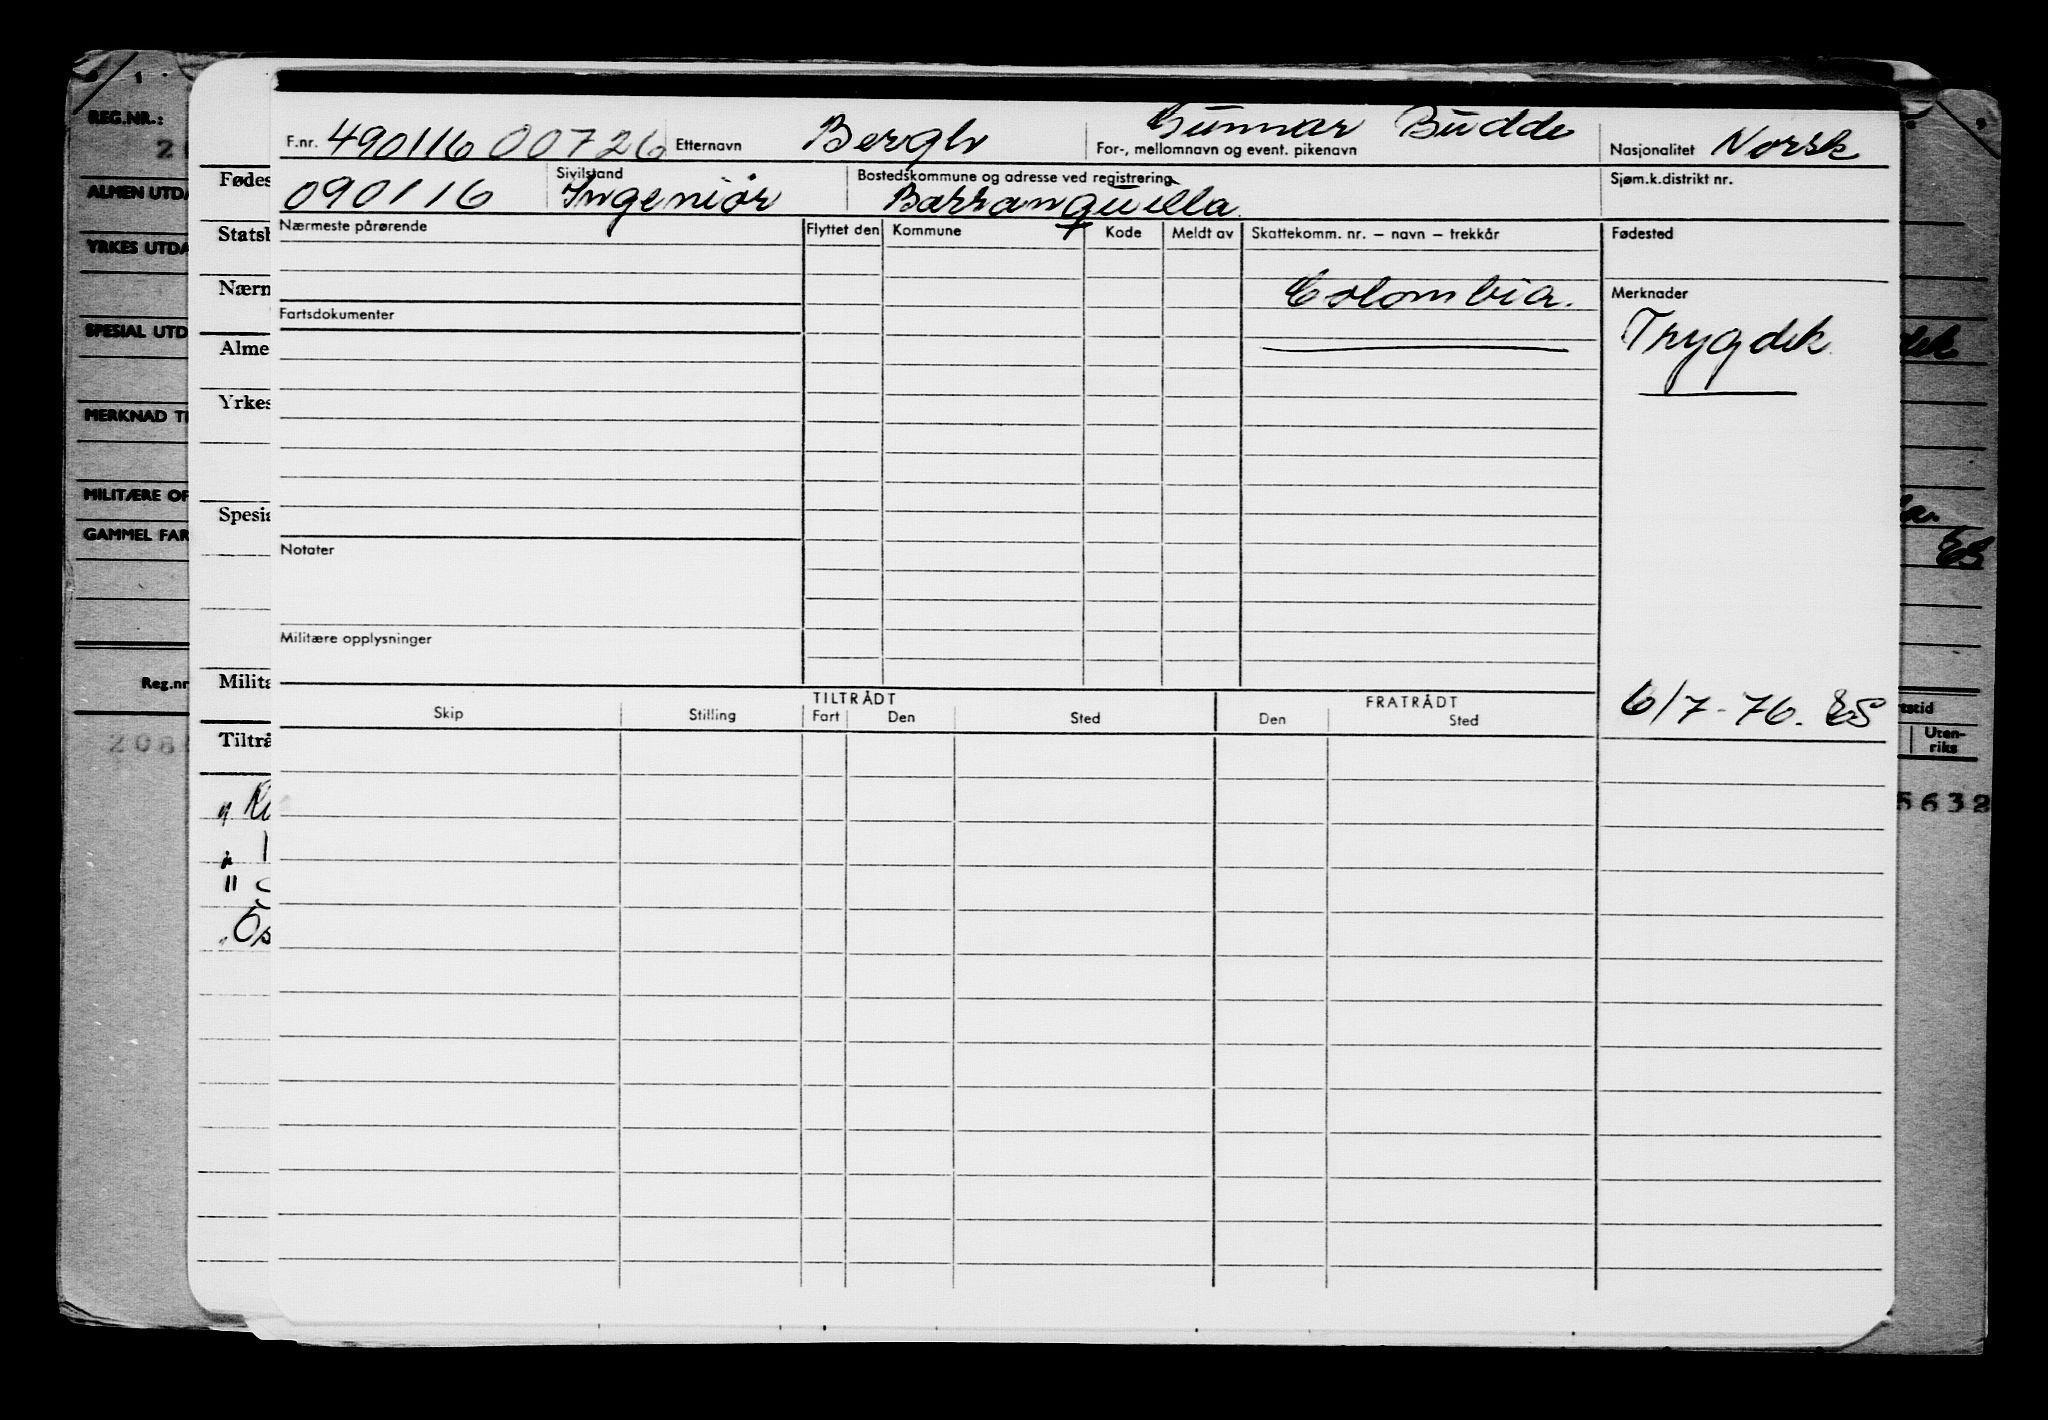 REG.NR.:
2
ALMEN UTDA
YRKES UTDA
SPESIAL UTD
MERKNAD TI
MILITÆRE OF
GAMMEL FAR
Reg.nr
208
Fødes
Statsb
Nærm
Alme
Yrkes
Spesia
Milita
Tiltrå
F.nr. 490116 00726 Etternavn Bergh Gunnar Budde
For-, mellomnavn og event. pikenavn
Nasjonalitet Norsk
090116 Sivilstand Ingeniør
Bostedskommune og adresse ved registrering
Barranquilla
Sjøm.k.distrikt nr.
Nærmeste pårørende Flyttet den Kommune Kode Meldt av Skattekomm. nr. – navn – trekkår Fødested
Colombia.
Merknader
Fartsdokumenter
Trygdek.
Notater
Militære opplysninger
6/7-76. ES
TILTRÅDT FRATRÅDT
Skip Stilling Fart Den Sted Den Sted
ES
tstid
Uten-
riks
5632